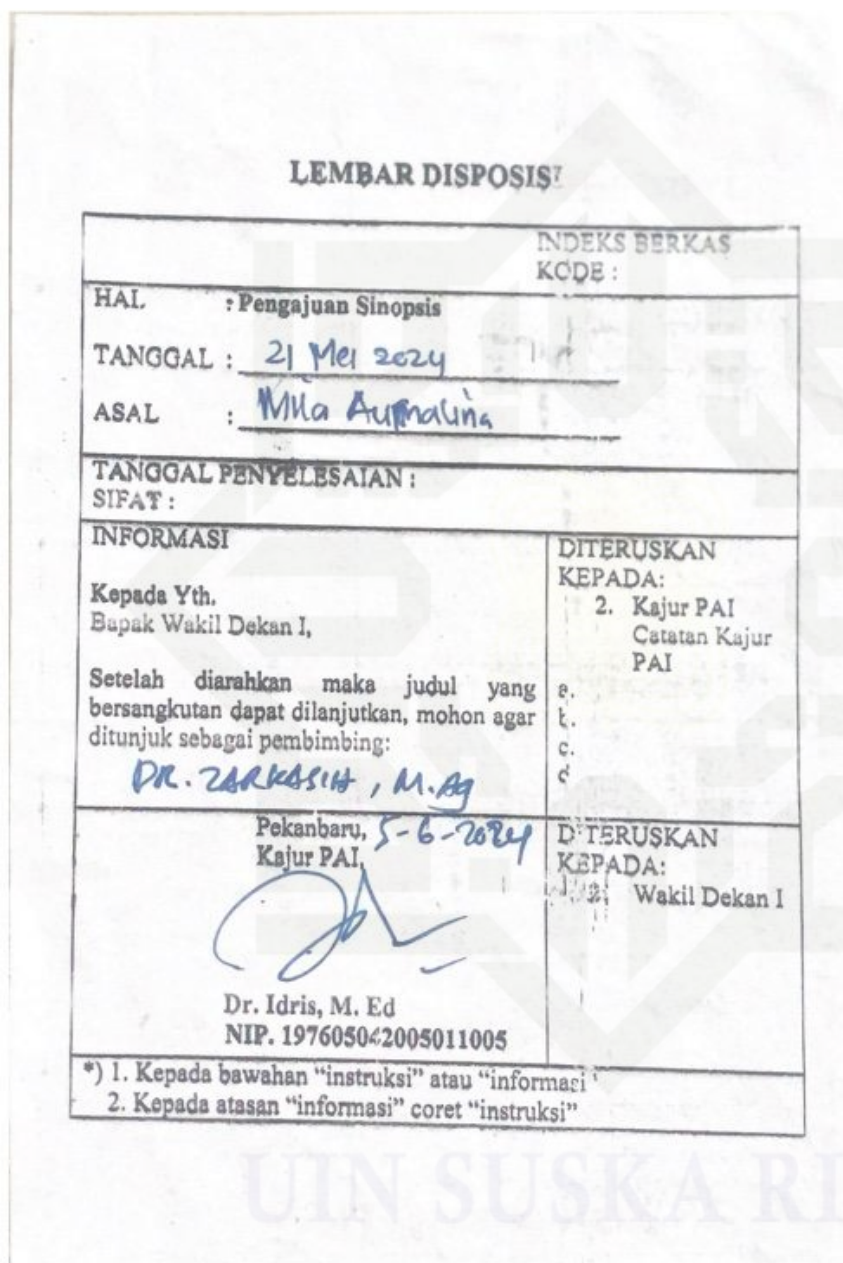 LEMBAR DISPOSISI
INDEKS BERKAS
KODE :
HAL : Pengajuan Sinopsis
TANGGAL : 21 Mei 2024
ASAL : Mila
TANGGAL PENYELESAIAN :
SIFAT :
INFORMASI
Kepada Yth.
Bapak Wakil Dekan I,
Setelah diarahkan maka judul yang
bersangkutan dapat dilanjutkan, mohon agar
ditunjuk sebagai pembimbing:
DR. ZARKASIH, M.Ag
DITERUSKAN
KEPADA:
2. Kajur PAI
Catatan Kajur
PAI
a.
b.
c.
d
Pekanbaru, 5-6-2024
Kajur PAI,
Dr. Idris, M. Ed
NIP. 197605042005011005
DITERUSKAN
KEPADA:
2. Wakil Dekan I
*) 1. Kepada bawahan "instruksi" atau "informasi"
2. Kepada atasan "informasi" coret "instruksi"
UIN SUSKA RI